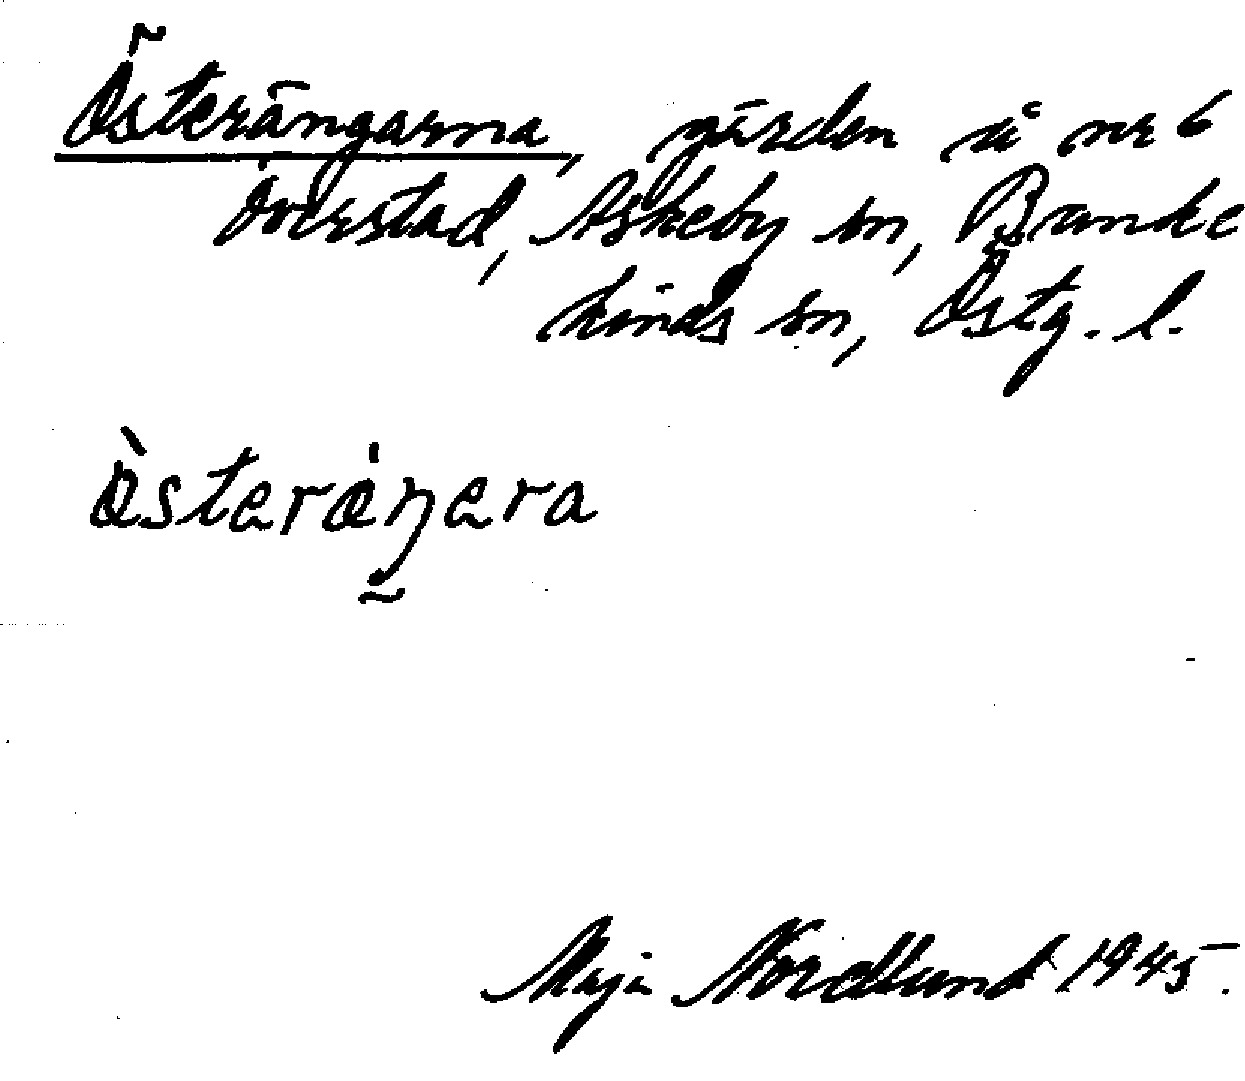 Österängarna, gärden å nr 6
Överstad, Askeby sn, Banke
kinds sn, Östg. l.
òsterȧŋera
Maja Nordlund 1945.